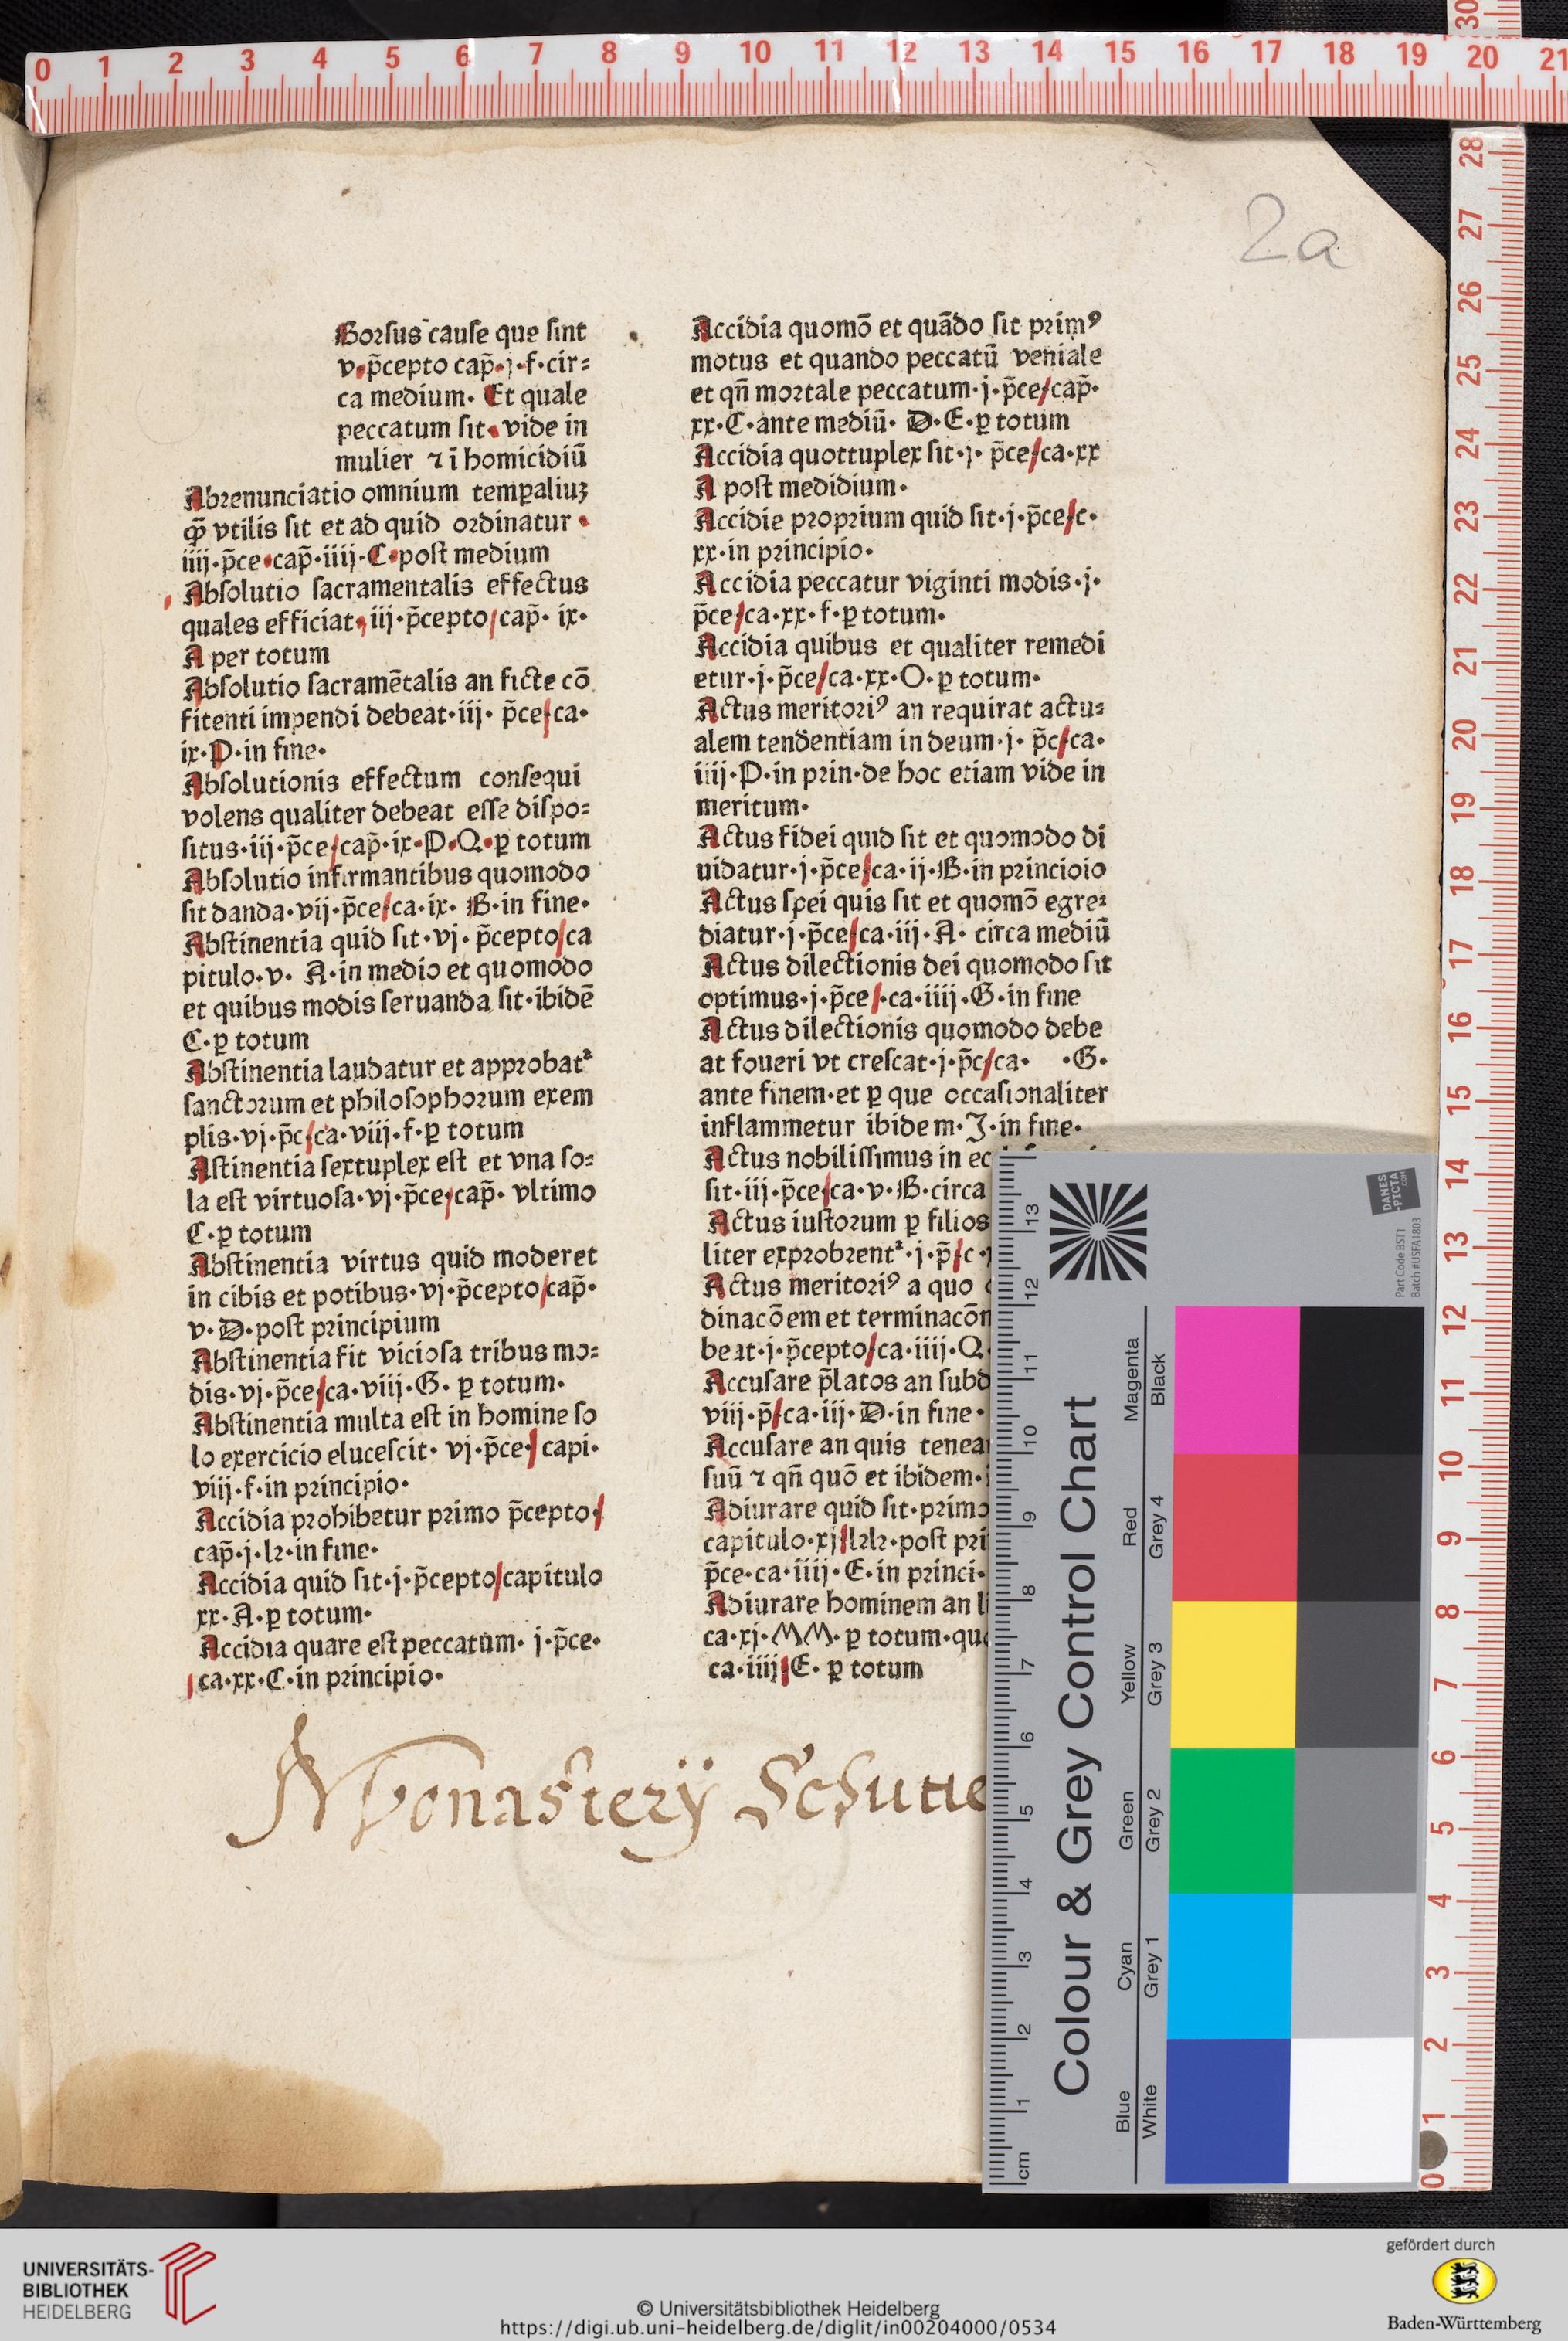 2a
Borsus cause que sint
v·p̄cepto cap̄·j·f·cir⸗
ca medium· Et quale
peccatum sit· vide in
mulier ⁊ ī homicidiū
Abrenunciatio omnium temꝑaliuꝫ
ꝙ̄ vtilis sit et ad quid ordinatur·
iiij·p̄ce·cap̄·iiij·C·post medium
Absolutio sacramentalis effectus
quales efficiat· iij·p̄cepto/cap̄· ix·
A per totum
Absolutio sacramētalis an ficte cō
fitenti impendi debeat·iij· p̄ce/ca·
ix·P·in fine·
Absolutionis effectum consequi
volens qualiter debeat esse dispo⸗
situs·iij·p̄ce/cap̄·ix·P·Q·ꝑ totum
Absolutio infirmantibus quomodo
sit danda·vij·p̄ce/ca·ix· B·in fine·
Abstinentia quid sit·vj· p̄cepto/ca
pitulo·v· A·in medio et quomodo
et quibus modis seruanda sit·ibidē
C·ꝑ totum
Abstinentia laudatur et approbat᷑
sanctorum et philosophorum exem
plis·vj·p̄c/ca·viij·f·ꝑ totum
Astinentia sextuplex est et vna so⸗
la est virtuosa·vj·p̄ce/cap̄· vltimo
C·ꝑ totum
Abstinentia virtus quid moderet
in cibis et potibus·vj·p̄cepto/cap̄·
v·D·post principium
Abstinentia fit viciosa tribus mo⸗
dis·vj·p̄ce/ca·viij·G· ꝑ totum·
Abstinentia multa est in homine so
lo exercicio elucescit· vj·p̄ce/ capi·
viij·f·in principio·
Accidia prohibetur primo p̄cepto/
cap̄·j·k·in fine·
Accidia quid sit·j·p̄cepto/capitulo
xx·A·ꝑ totum·
Accidia quare est peccatum· j·p̄ce·
/ca·xx·C·in principio·
Accidia quomō et quādo sit primꝰ
motus et quando peccatū veniale
et qn̄ mortale peccatum·j·p̄ce/cap̄·
xx·C·ante mediū· D·E·ꝑ totum
Accidia quottuplex sit·j· p̄ce/ca·xx
A post medidium·
Accidie proprium quid sit·j·p̄ce/c·
xx·in principio·
Accidia peccatur viginti modis·j·
p̄ce/ca·xx·f·ꝑ totum·
Accidia quibus et qualiter remedi
etur·j·p̄ce/ca·xx·O·ꝑ totum·
Actus meritoriꝰ an requirat actu⸗
alem tendentiam in deum·j· p̄c/ca·
iiij·P·in prin·de hoc etiam vide in
meritum·
Actus fidei quid sit et quomodo di
uidatur·j·p̄ce/ca·ij·B·in princioio
Actus spei quis sit et quomō egre⸗
diatur·j·p̄ce/ca·iij·A· circa mediū
Actus dilectionis dei quomodo sit
optimus·j·p̄ce/·ca·iiij·G·in fine
Actus dilectionis quomodo debe
at foueri vt crescat·j·p̄c/ca· ·G·
ante finem·et ꝑ que occasionaliter
inflammetur ibidem·J·in fine·
Actus nobilissimus in
sit·iij·p̄ce/ca·v·B·circa
Actus iustorum ꝑ filios
liter exprobrent᷑·j·p̄/c·
Actus meritoriꝰ a quo
dinacōem et terminacōn
beat·j·p̄cepto/ca·iiij·Q·
Accusare p̄latos an subd
viij·p̄/ca·iij·D·in fine·
Accusare an quis tenea
suū ⁊ qn̄ quō et ibidem·
Adiurare quid sit·primo
capitulo·xj/kk·post pri
p̄ce·ca·iiij·E·in princi·
Adiurare hominem an l
ca·xj·MM·ꝑ totum·qu
ca·iiij/E· ꝑ totum
Monasterÿ Schutte
Colour & Grey Control Chart
Magenta
Black
Red
Grey 4
Yellow
Grey 3
Green
Grey 2
Cyan
Grey 1
Blue
White
cm 1 2 3 4 5 6 7 8 9 10 11 12 13
DANES
-PICTA
.COM
Part Code BST1
Batch #USFA1803
0 1 2 3 4 5 6 7 8 9 10 11 12 13 14 15 16 17 18 19 20 21
0 1 2 3 4 5 6 7 8 9 10 11 12 13 14 15 16 17 18 19 20 21 22 23 24 25 26 27 28 30
UNIVERSITÄTS-
BIBLIOTHEK
HEIDELBERG
© Universitätsbibliothek Heidelberg
https://digi.ub.uni-heidelberg.de/diglit/in00204000/0534
gefördert durch
Baden-Württemberg